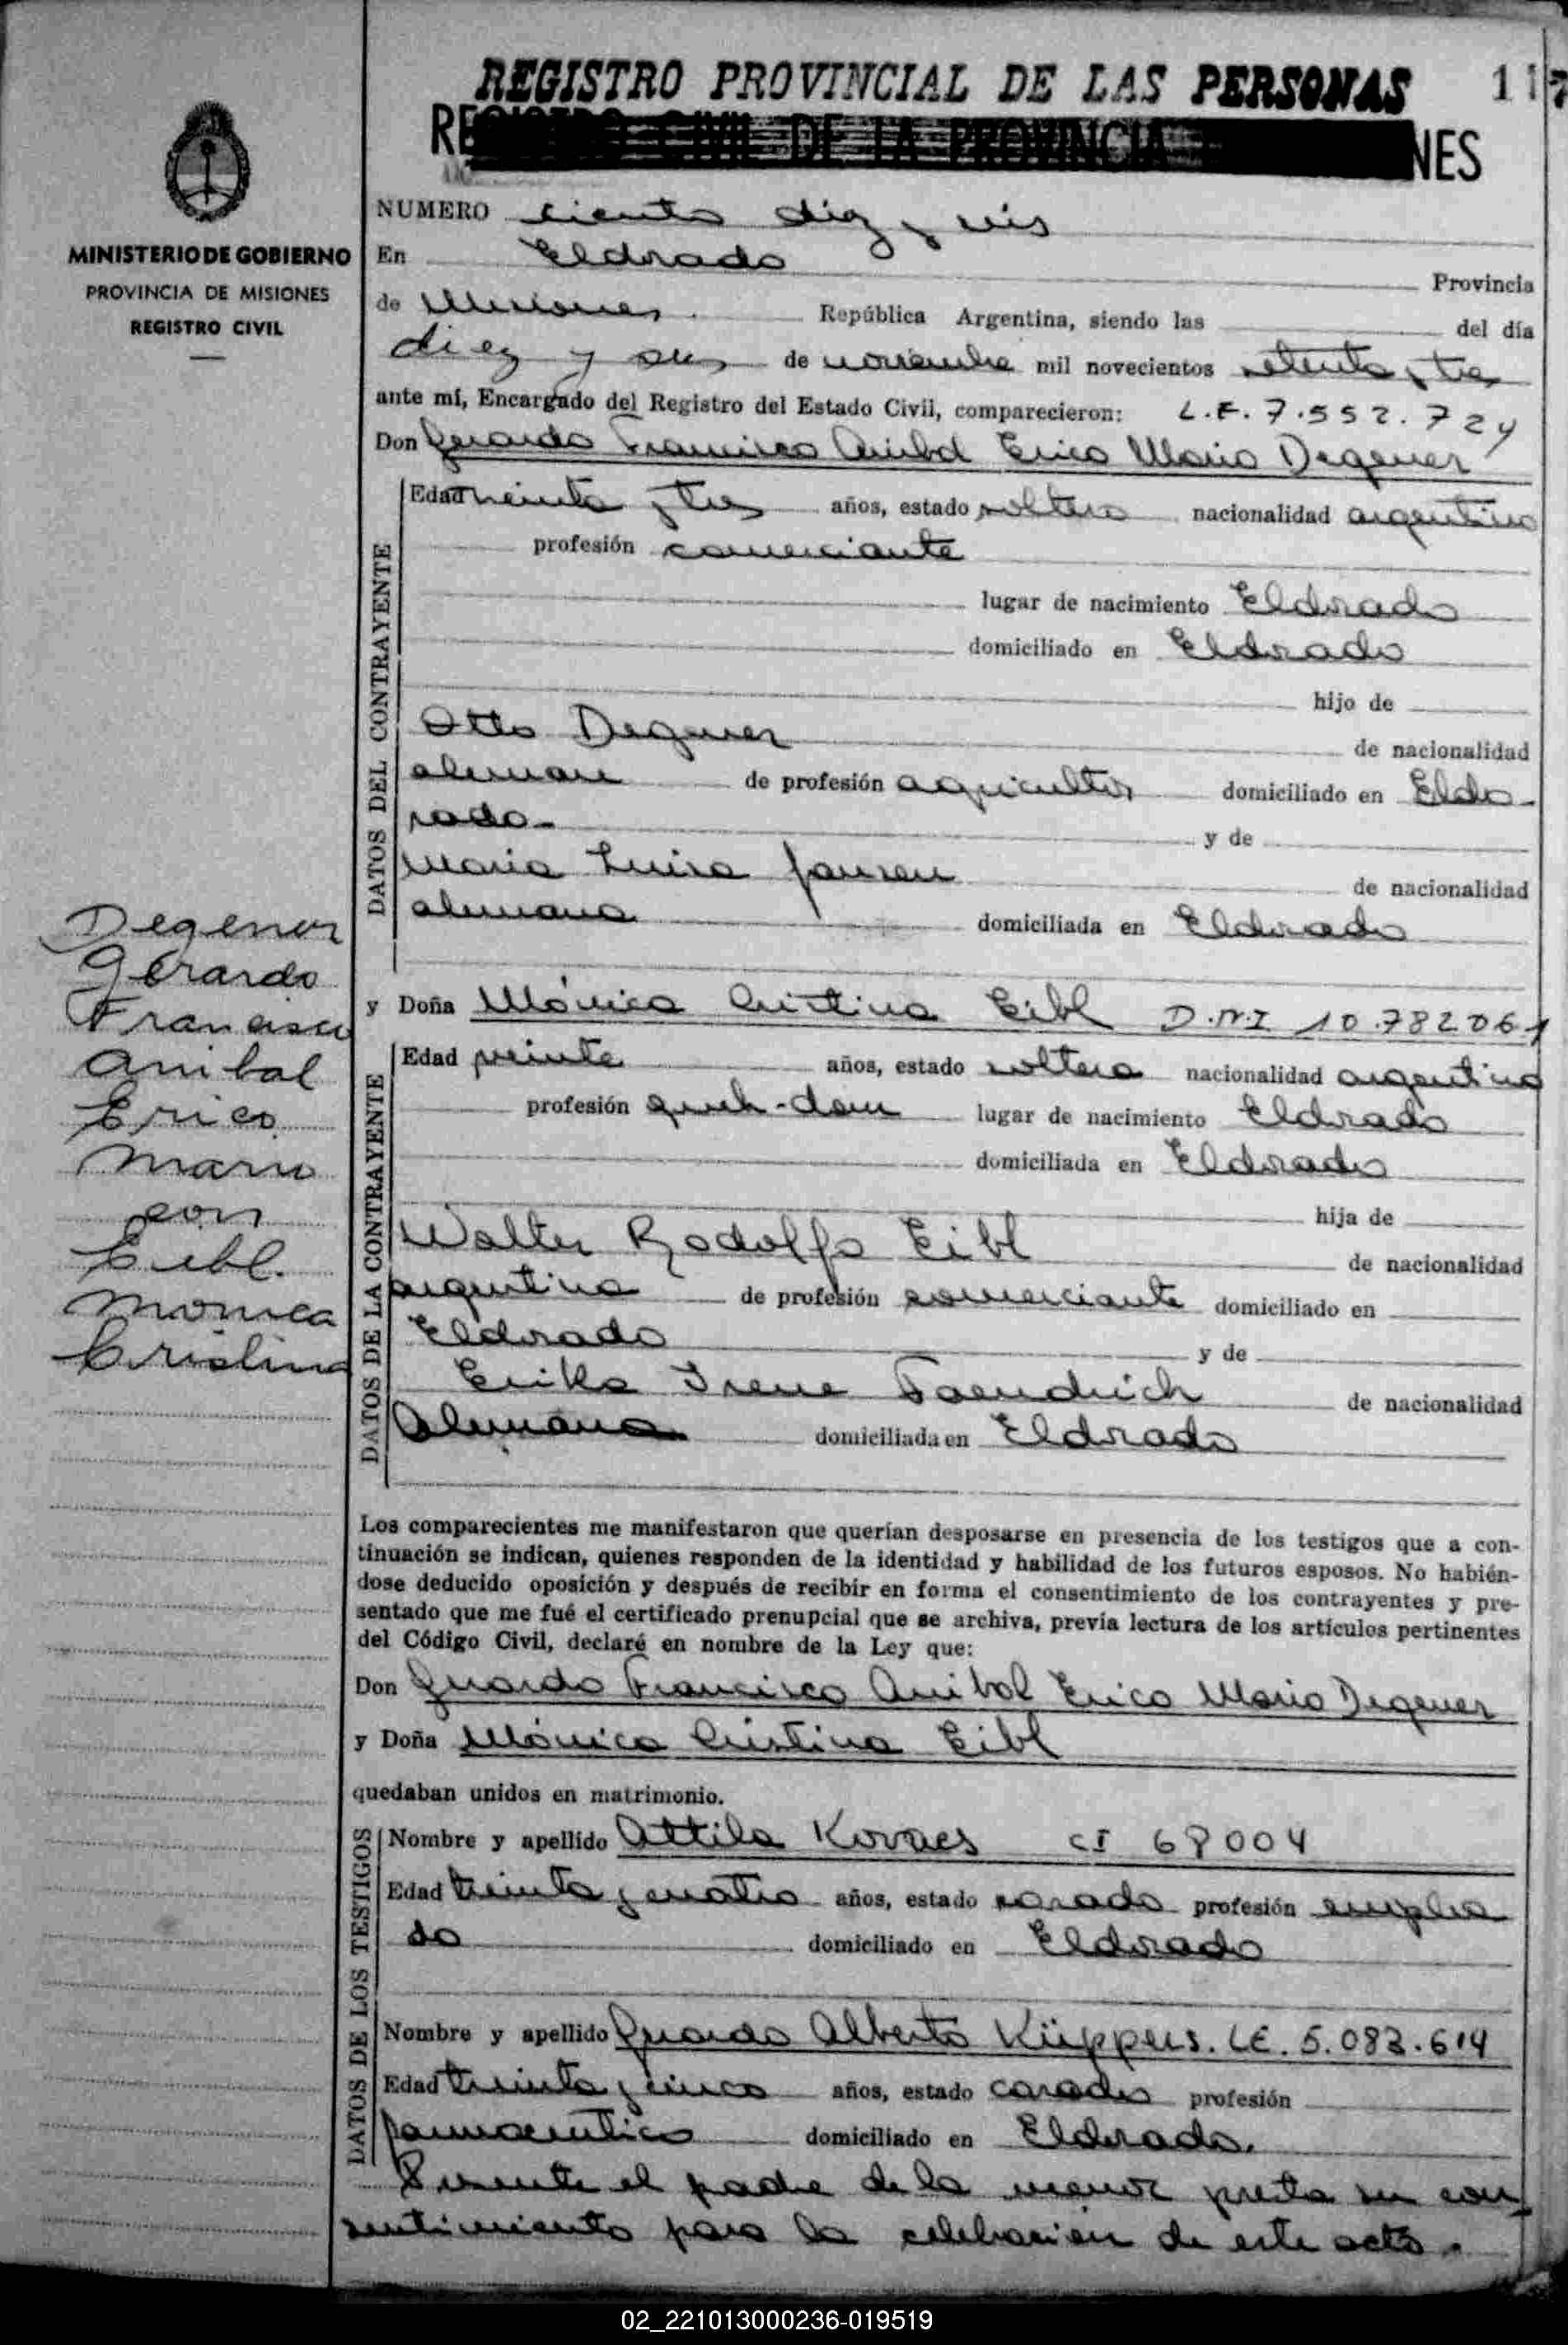 REGISTRO PROVINCIAL DE LAS PERSONAS 117
REGISTRO CIVIL DE LA PROVINCIA NES
NUMERO ciento diez y seis
MINISTERIO DE GOBIERNO
PROVINCIA DE MISIONES
REGISTRO CIVIL
En Eldorado Provincia
de Misiones. República Argentina, siendo las del día
diez y seis de noviembre mil novecientos setenta y tres
ante mí, Encargado del Registro del Estado Civil, comparecieron: L.E. 7.552.724
Don Gerardo Francisco Anibal Erico Mario Degener
DATOS DEL CONTRAYENTE
Edad treinta y tres años, estado soltero nacionalidad argentino
profesión comerciante
lugar de nacimiento Eldorado
domiciliado en Eldorado
hijo de
Otto Degener de nacionalidad
aleman de profesión agricultor domiciliado en Eldo-
rado- y de
Maria Luisa Jansen de nacionalidad
alemana domiciliada en Eldorado
Degener
Gerardo
Francisco
Anibal
Erico
Mario
con
Eibl.
Monica
Cristina
y Doña Mónica Cristina Eibl D.N.I 10.782061
DATOS DE LA CONTRAYENTE
Edad veinte años, estado soltera nacionalidad argentina
profesión queh-dom lugar de nacimiento Eldorado
domiciliada en Eldorado
hija de
Walter Rodolfo Eibl de nacionalidad
argentina de profesión comerciante domiciliado en
Eldorado y de
Erika Irene Faendrich de nacionalidad
Alemana domiciliada en Eldorado
Los comparecientes me manifestaron que querían desposarse en presencia de los testigos que a con-
tinuación se indican, quienes responden de la identidad y habilidad de los futuros esposos. No habién-
dose deducido oposición y después de recibir en forma el consentimiento de los contrayentes y pre-
sentado que me fué el certificado prenupcial que se archiva, previa lectura de los artículos pertinentes
del Código Civil, declaré en nombre de la Ley que:
Don Gerardo Francisco Anibal Erico Mario Degener
y Doña Mónica Cristina Eibl
quedaban unidos en matrimonio.
DATOS DE LOS TESTIGOS
Nombre y apellido Attila Kovacs CI 68004
Edad treinta y cuatro años, estado casado profesión emplea
do domiciliado en Eldorado
Nombre y apellido Gerardo Alberto Küppers. LE. 5.083.614
Edad treinta y cinco años, estado casado profesión
farmaceutico domiciliado en Eldorado.
Presente el padre de la menor presta su con
sentimiento para la celebracion de este acto.
02_221013000236-019519